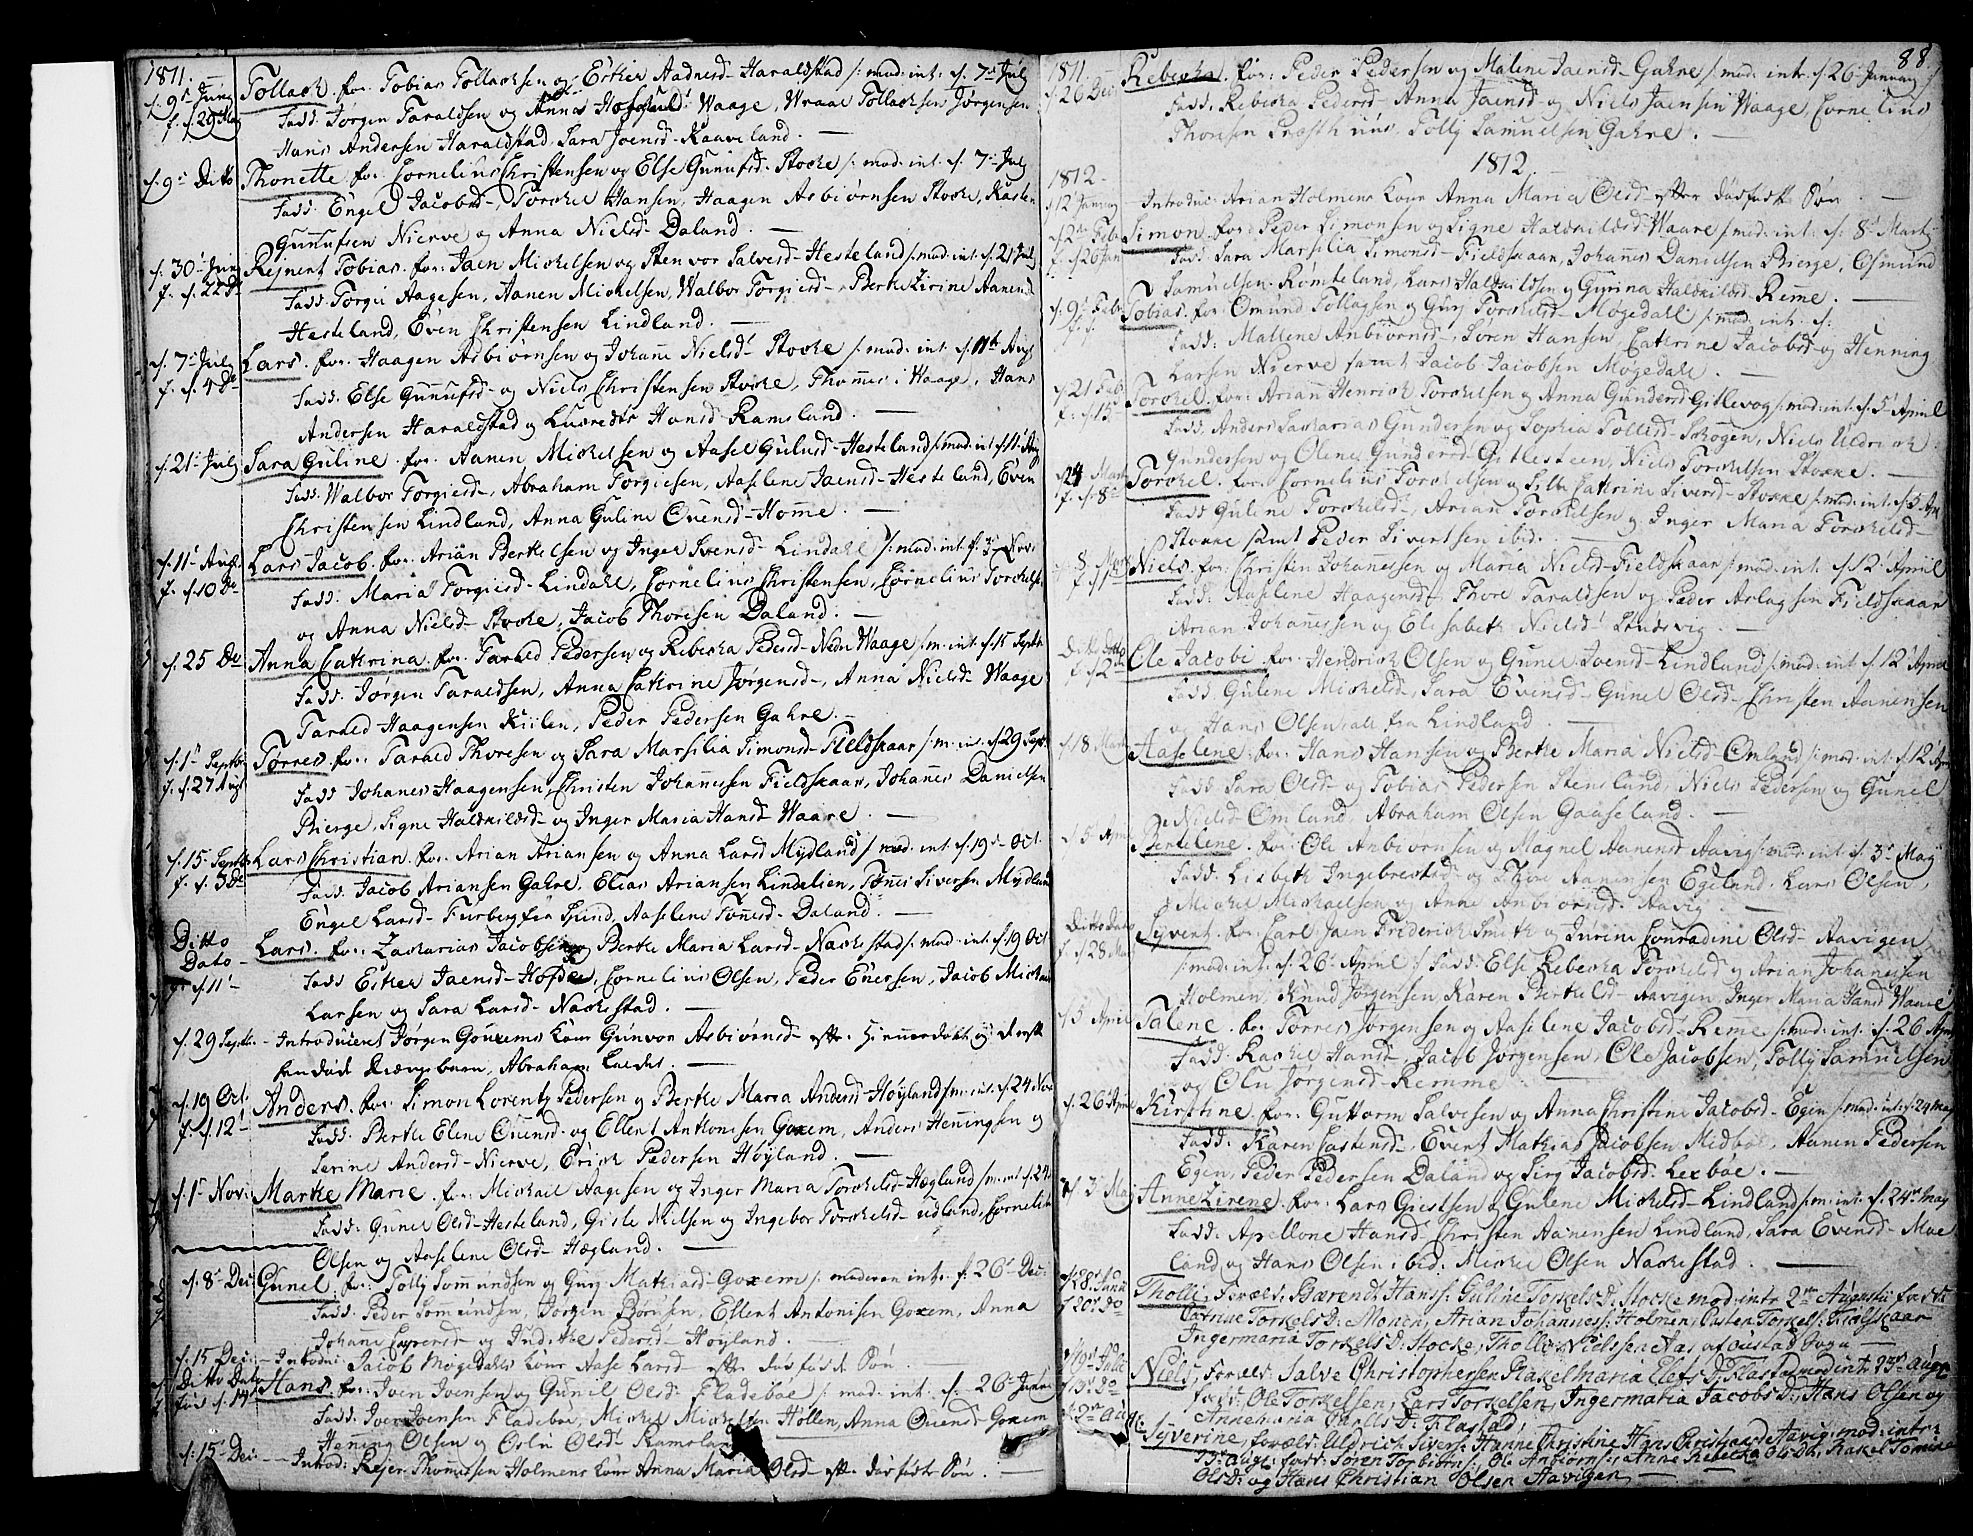 1811.
d. 9de Junij Tollach. for. Tobias Tollachsen og Esther Aadnesd- Haraldstad /: mod: int: d. 7de Julj
f. d. 29 Maj Fadd: Jørgen Taraldsen og Waage,
Hans Andersen Haraldstad, Sara Joensd- Kaaveland.
d. 9de Ditto Thonette. for. Cornelius Christensen og Else Gunufsd- Stocke /: mod: int. d. 7de Julj
Fadd: Engel Jacobsd-, Torckel Hansen, Haagen Asbiørnsen Stocke, Karsten
Gunnufsen Nierve og Anna Nielsd- Daland.
d. 30 Junj Rejnert Tobias. for: Jaen Mickelsen og Stenvor Salvesd- Hesteland /: mod: int: d. 21 Julj
f. d. 22de Fadd: Torgie Aagesen, Aanen Mickelsen, Walbor Torgiersd- Berte Lirine Aanensd-
Hesteland, Even Christensen Lindland.
d. 7de Julj Lars. for. Haagen Asbiørnsen og Johane Nielsd- Stocke /: mod: int. d. 11te Aug
f. d. 4de Fadd: Else Gunufsd- og Niels Christensen Stocke, Thomes i Waage, Hans
Andersen Haraldstad og Hansd- Ramsland.
d. 21 Julj Sara Guline. for. Aanen Mickelsen og Aasel Gulufsd- Hesteland /: mod: int d 11 Aug
Fadd: Walbor Torgiersd-, Abraham Torgiesen, Aaselene Jaensd- Hesteland, Even
Christensen Lindland, Anna Guline Ovensd- Homme.
d. 11 Aug. Lars Jacob. for. Arian Bertelsen og Inger Svensd- Lindahl /: mod: int. d. 3 Nov:
f. d. 10 De Fadd: Maria Torgiersd- Lindahl, Cornelius Christensen, Cornelius Torckelsen
og Anna Nielsd- Stocke, Jacob Thoresen Daland.
d. 25 De Anna Cathrina. for. Tarald Pedersen og Rebecka Pedersd- Nedre Waage /: m: int. d. 15 Septbr
Fadd: Jørgen Taraldsen, Anna Cathrine Jørgensd-, Anna Nielsd- Waage
Tarald Haagensen Kiilen, Peder Pedersen Gahre.
d. 1 Septbr Tørres. for. Tarald Thoresen og Sara Marsilia Simonsd- Fieldskaar /: m: int. d 29 Septr.
f. d. 27 Aug Fadd Johanes Haagensen, Christen Johannesen Fieldskaar, Johannes Danielsen
Bierge, Signe Haldkildsd- og Inger Maria Hansd- Waare.
d. 15. Septbr Lars Christian. for. Arian Ariansen og Anna Larsd Mydland /: mod: int d. 19de Oct.
f. d. 3de Fadd: Jacob Ariansen Gahre, Elias Ariansen Lindelien, Tønnes Siversen Mydland
Engel Larsd- Furberg fra Lund, Aaselene Tønesd- Daland.
Ditto Dato Lars. for. Zacharias Jacobsen og Berthe Maria Larsd- Nackestad /: mod: int. d. 19 Oct
f. d. 11 Fadd Esther Jaensd- Cornelius Olsen, Peder Enersen, Jacob Mickel
Larsen og Sara Larsd- Nackestad.
d. 29 Septbr. - Introduceret Jørgen Goxems Kone Gunvor Asbiørnsd- efter. Hiemmedøbt og derefter
hendøde Drengebarn, Abraham kaldet.
d. 19 Oct. Anders. for. Simon Lorentz Pedersen og Berthe Maria Andersd- Høyland /: m: int. d. 24 Nov
f. d. 12 Fadd: Berthe Elene Ovensd- og Ellert Antonisen Goxem, Anders Henningsen og
Serine Andersd- Nierve, Erick Pedersen Høyland.
d. 1 Nov: Marthe Marie. for. Mickail Aagesen og Inger Maria Torckelsd- Hægland /: m: int d. 24
Fadd: Gunel Olsd- Hesteland, Gitle Nielsen og Ingebor Torckelsd- udland, Cornelius
Olsen og Aaselene Olsd- Hægland.
d. 8 Dec: Gunel. for. Tolly Sommundsen og Gurj Mathiasd- Goxem /: moderen int: d. 26 Dec:
Fadd: Peder Somundsen, Jørgen Borusen, Ellert Antonisen Goxem, Anna
Johane og Pedersd- Høyland.
d. 15 Dec: - Introdu: Jacob Møgedahls Kone Aase Larsd- efter dødfødt Søn.
Ditto Dato Hans. for. Iver Ivensen og Gunil Olsd- Fladeboe /: mod: int: d. 26 Januarj
Fadd: Iver Jensen Fladeboe, Mickel Mickelsen Hollen, Anna Ovensd- Goxem
Hening Olsen og Oslu Olsd- Ramsland.
d. 15 Dec: - Introd: Rejer Thomesen Holmens Kone Anna Maria Olsd- efter dødfødt Søn.
88
1811.
d. 26 Dec Rebecka. for: Peder Pedersen og Malene Jaensd- Gahre /: mod: intr. d 26 Januarj
Fadd: Rebecka Pedersd- Anna Jaensd- og Niels Jaensen Waage, Cornelius
Thoresen Præsthuus, Tolly Samuelsen Gahre.
1812.
1812.
d 12 Januarj - Introduc: Arian Holmens Kone Anna Maria Olsd- efter dødfødt Søn
d 2 Feb: Simon. for: Peder Simonsen og Signe Haldkildsd- Waare /: mod: int: d: 8de Martj
f. d 26 Jan Fadd: Sara Marsilia Simonsd- Fieldskaar, Johannes Danielsen Bierge, Osmund
Samuelsen Rømteland, Lars Haldkildsen og Gurina Haldkildsd- Reme.
d. 9de Feb: Tobias. for: Omund Tollagsen og Gurj Torckelsd- Møgedahl /: mod: int: d:
Fadd: Mallene Anbiørnsd-, Søren Hansen, Catrine Jacobsd- og Henning
Larsen Nierve samt Jacob Jacobsen Møgedahl
d 21 Feb Torckel. for: Arian Henrich Torckelsen og Anna Gundersd Gitlevog /: mod: int. d. 5 April
f. d 15 Fadd: Anders Zacharias Gundersen og Sophia Tollisd- Schogen, Niels Uldrick
Gundersen og Olene Gundersd Gitlesteen, Niels Torckelsen Stocke.
d 24 Martj Torckel. for: Cornelius Torckelsen og Sille Cathrine Siversd- Stocke /: mod: int. d. 5 Apr
f. d. 8de Fadd Guline Torckelsd-, Arian Torckelsen og Inger Maria Torckelsd-
Stocke samt Peder Sivertsen ibid.
d. 8 Martj Niels. for: Christen Johannesen og Maria Nielsd- Fieldskaar /: mod: int. d. 12 April
Fadd: Aaselene Haagensd- Thore Taraldsen og Peder Aslagsen Fieldskaar
Arian Johannesen og Elisabeth Nielsd Lundevig
Ditto Ditto Ole Jacobi. for. Hendrich Olsen og Gunel Joensd- Lindland /: mod: int d. 12 April
f. d 2de Fadd Gulene Mickelsd-, Sara Evensd- Gunel Olsd- Christen Aanensen
og Hans Olsen alle fra Lindland
d 18 Martj Aaselene. for. Hans Hansen og Berthe Maria Nielsd Omland /: mod: int. d. 12 April
Fadd Sara Olsd- og Tobias Pedersen Stensland, Niels Pedersen og Gunel
Nielsd- Omland, Abraham Olsen Gaaseland.
d 5 April Bertelene. for. Ole Anbiørnsen og Magnel Aanensd Aavig /: mod: int d. 3 Maj
Fadd: Lisbeth Ingebretsd- og Thore Aanensen Egeland, Lars Olsen,
Mickel Mickaelsen og Anne Anbiørnsd- Aavig
Ditto Dato Syvert. for. Carl Jaen Friderich Smith og Jurine Conradine Olsd- Aavigen
f. d 28 Mar /: mod: int. d. 26 April :/ Fadd: Else Rebecka Torckelsd, og Arian Johannesen
Holmen, Knud Jørgensen, Karen Berthelsd- Aavigen, Inger Maria Hansd Waare
d 5 April Talene. for Tørres Jørgensen og Aaselene Jacobsd- Reme /: mod: int. d. 26 Apr
Fadd: Rachel Hansd-, Jacob Jørgensen, Ole Jacobsen, Tolly Samuelsen
og Olu Jørgensd- Remme.
d. 26 April Kirstine. for. Guttorm Salvesen og Anna Christine Jacobsd- Egen /: mod: int: d. 24 Maj
Fadd: Karen Castensd-, Event Mathias Jacobsen Midboe, Aanen Pedersen
Egen, Peder Pedersen Daland og Siry Jacobsd- Lexboe.
d 3 Maj Anne Zirene. for. Lars Gietsen & Gulene Mickelsd- Lindland /: m: int. d. 24de Maj
Fadd: Apellone Hansd- Christen Aanensen Lindland, Sara Evensd- Moe
land og Hans Olsen ibid: Mickel Olsen Nackestad.
d 28de Junii Tholle, Foræld: Bærend Hanss: Guline Torkels D: Stocke mod: intr 2den Augustii fadd:
f 20de Do Catrine Torkels D: Monen, Arian Johannes: Holmen, Casten Torkels: Fieldskaar
Ingermaria Torkels D: Stocke, Tholle Nielssen Aas af Oustad Sogn
d 19de Julii Niels, Foræld: Salve Christophersen Rakelmaria Elefs D: Flastad mod: intr: 23de Aug:
f 13de Do fadd: Ole Torkelsen, Lars Torkelsen, Ingermaria Jacobs D: Hans Olsen og
Annemaria Tholls D: Flastad.
d 2den Aug: Syverine, foræld: Uldrich Sivers: Hanne Christine Hans Aavig. mod: intr:
23de Aug: fadd: Søren Torbiørn: Ole Anbiørns: Anne Rebecka Ols D: Rakel Tomine
Ols D: og Hans Christian Olsen Aavigen